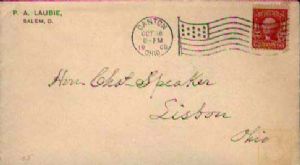 P. A. LAUBIE,
SALEM, O.
CANTON
OCT
8-PM
19
OHIO
Hon. Chas. Speaker
Lisbon
Ohio